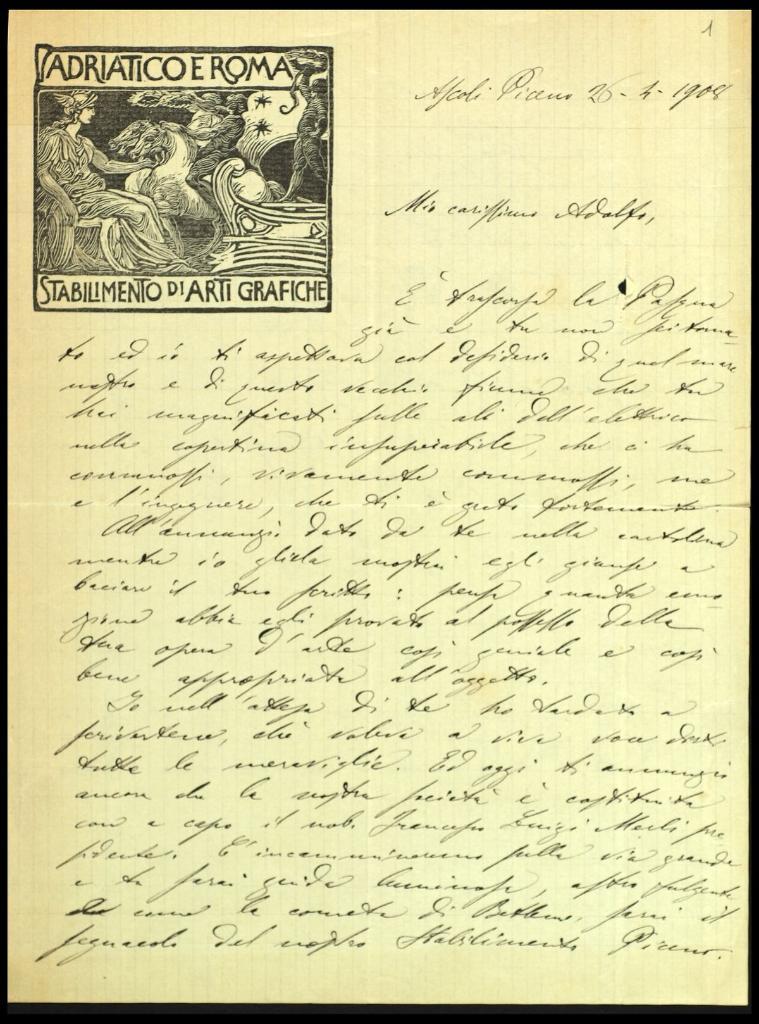 1
ADRIATICO E ROMA
STABILIMENTO DI ARTI GRAFICHE
Ascoli Piceno 26-4-1908
Mio carissimo Adolfo,
È trascorsa la Pasqua
già e tu non sei torna-
to ed io ti aspettava col desiderio di quel mare
nostro e di questo vecchio fiume che tu
hai magnificati sulle ali dell'elettrico
nella copertina insuperabile, che ci ha
commossi, vivamente commossi, me
e l'ingegnere, che ti è grato fortemente.
All'annunzio dato da te nella cartolina
mentre io gliela mostrai egli giunse a
baciare il tuo scritto: pensa quanta emo-
zione abbia egli provato al possesso della
tua opera d'arte così geniale e così
bene appropriata all'oggetto.
Io nell'attesa di te ho tardato a
scrivertene, chè voleva a viva voce dirti
tutte le meraviglie. Ed oggi ti annunzio
ancora che la nostra società è costituita
con a capo il nob. Francesco Luigi Merli pre
sidente. C'incammineremo sulla via grande
e tu sarai guida luminosa, astro fulgente
come la cometa di Betlemme, sarai il
segnacolo del nostro Stabilimento Piceno.